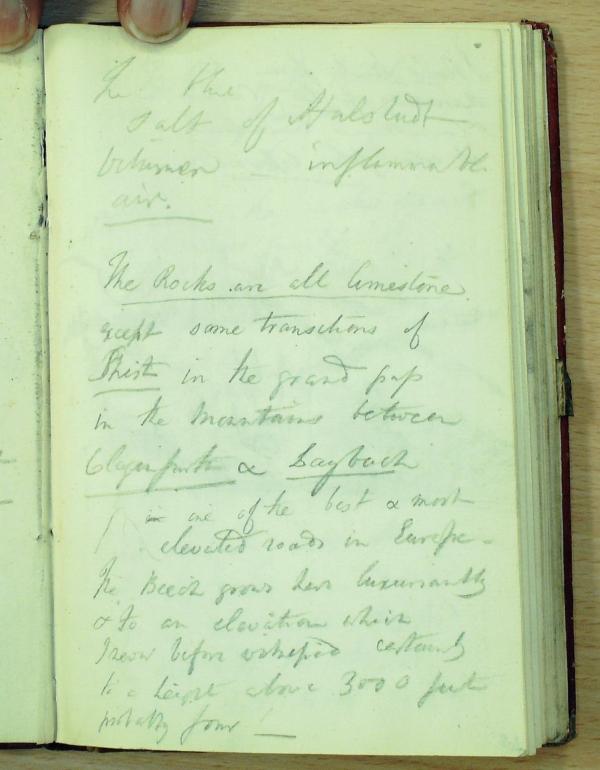 In the
salt of Halstadt
bitumen — inflammable
air.
The Rocks are all limestone
except some transitions of
Shist in the grand pass
in the mountains between
Clagenfurth & Laybach
in one of the best & most
elevated roads in Europe -
The Beech grows here luxuriantly
& to an elevation which
I never before witnessed certainly
to a height above 3000 feet
probably four —